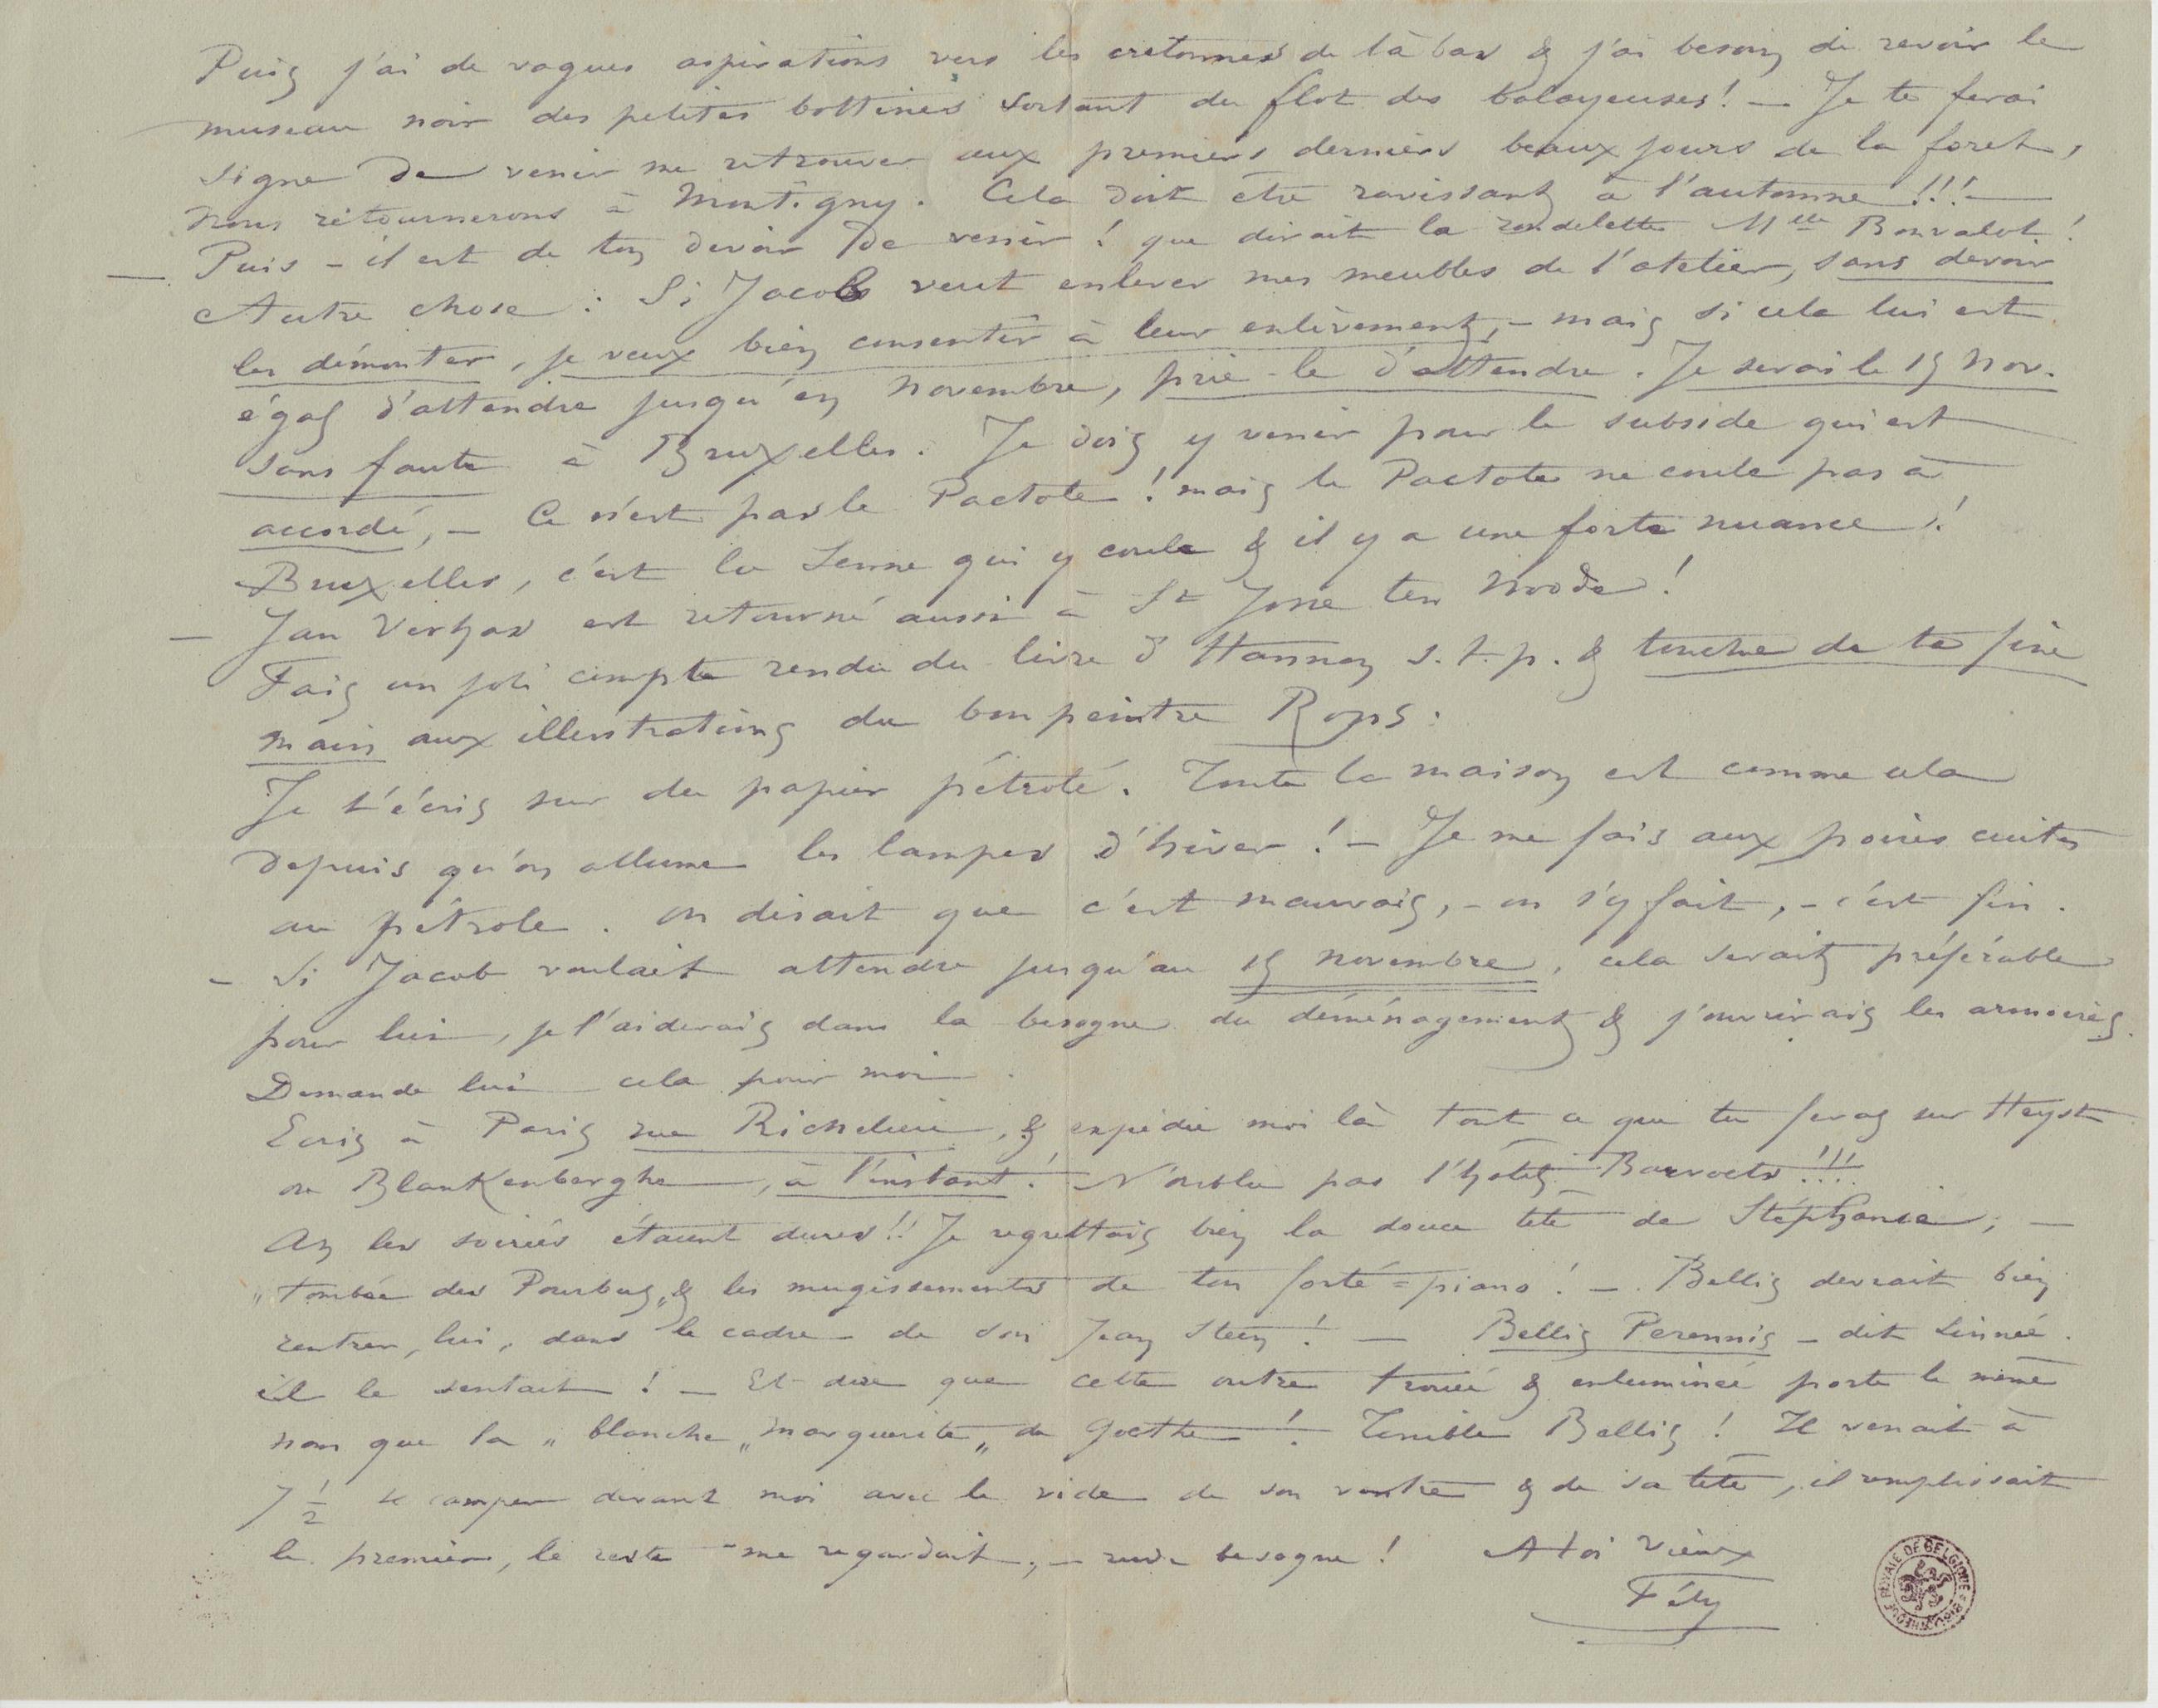 Puis j'ai de vagues aspirations vers les cretonnes de là bas & j'ai besoin de revoir le
museau noir des petites bottines sortant du flot des balayeuses! — Je te ferai
signe de venir me retrouver aux premiers derniers beaux jours de la foret,
nous retournerons à Montigny. Cela doit être ravissant à l'automne!!! —
Puis – il est de ton devoir de venir! que dirait la rondelette Melle Bonvalot!
— Autre chose: Si Jacob veut enlever mes meubles de l'atelier, sans devoir
les démonter, je veux bien consentir à leur enlèvement, – mais si cela lui est
égal d'attendre jusqu'en Novembre, prie-le d'attendre. Je serai le 15 Nov.
sans faute à Bruxelles. Je dois y venir pour le subside qui est
accordé, – Ce n'est pas le Pactole! mais le Pactole ne coule pas à
Bruxelles, c'est la Senne qui y coule & il y a une forte nuance!
— Jan Verhas est retourné aussi à St Josse ten Noode!
Fais un joli compte rendu du livre d'Hannon s.t.p. & touche de ta fine
main aux illustrations du bon peintre Rops.
Je t'écris sur du papier pétrolé. Toute la maison est comme cela
depuis qu'on allume les lampes d'hiver! – Je me fais aux poires cuites
au pétrole. on disait que c'est mauvais, – on s'y fait, – c'est fin.
– Si Jacob voulait attendre jusqu'au 15 novembre, cela serait préférable
pour lui, je l'aiderais dans la besogne du déménagement & j'ouvrirais les armoires.
Demande lui cela pour moi.
Ecris à Paris rue Richelieu, & expédie moi là tout ce que tu feras sur Heyst
ou Blankenberghe, à l'instant! N'oublie pas l'hôtel Baervoets!!!
Ah les soirées étaient dures!! Je regrettais bien la douce tête de Stéphanie, —
„tombée des Pourbus„ & les mugissements de ton forté=piano! – Bellis devrait bien
rentrer, lui, dans le cadre de son Jean Steen! — Bellis Perennis – dit Linnée.
il le sentait! – Et dire que cette outre trouée & enluminée porte le même
nom que la „blanche„ marguerite„ de Goethe! Terrible Bellis! Il venait à
7 1/2 se camper devant moi avec le vide de son ventre & de sa tête, il remplissait
le premier, le reste me regardait, – rude besogne! A toi vieux
Fély
BIBLIOTHEQUE ROYALE DE BELGIQUE